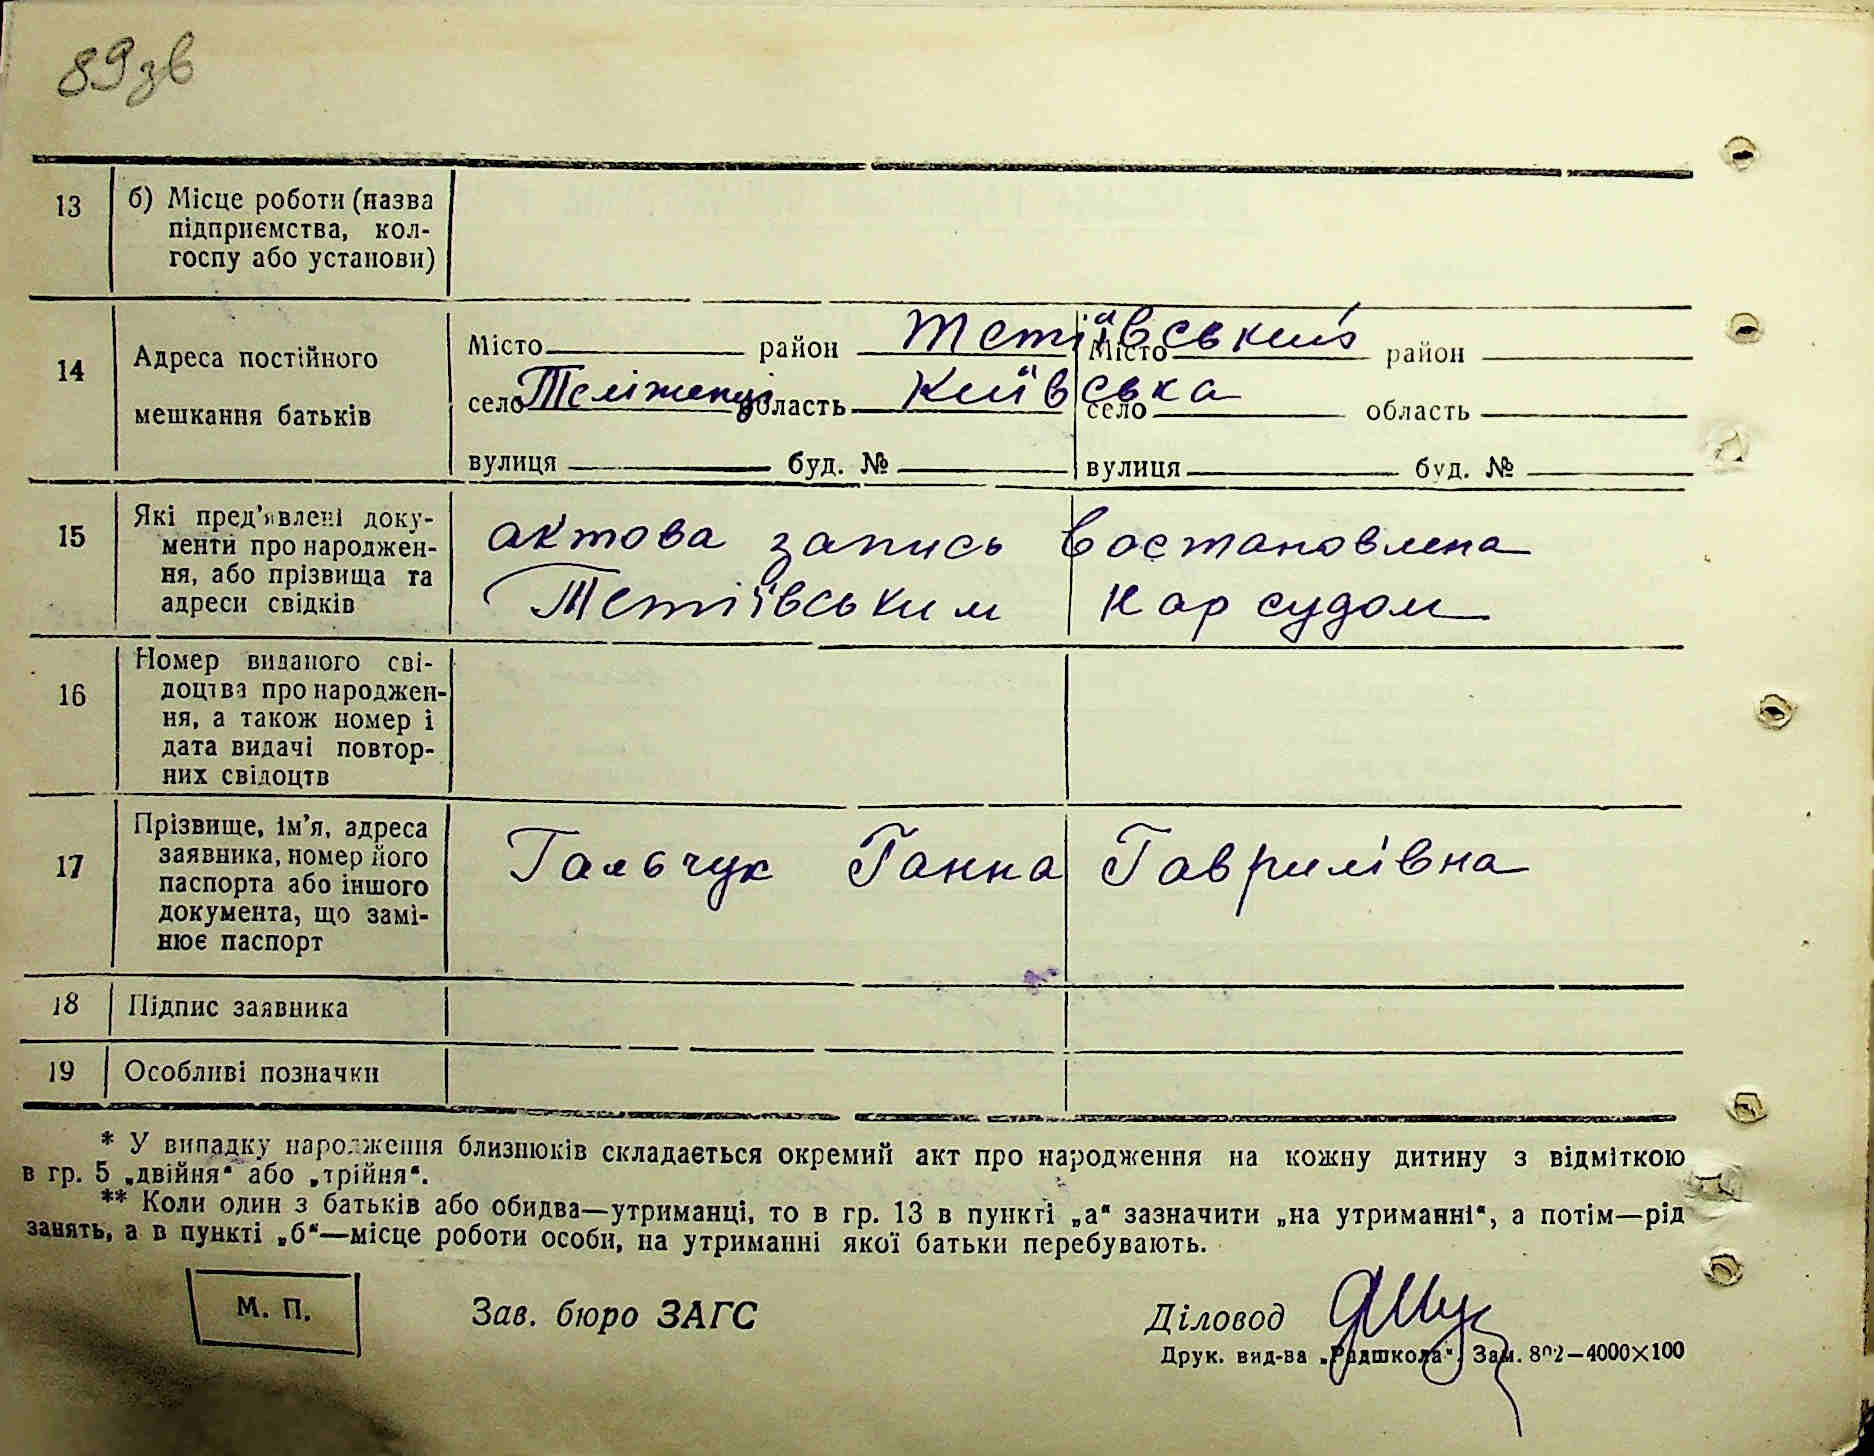 89зв
13 б) Місце роботи (назва
підприємства, кол-
госпу або установи)
14 Адреса постійного
мешкання батьків
Місто район Тетіївський Місто район
село Теліженці область Київська село область
вулиця буд. № вулиця буд. №
15 Які пред'явлені доку-
менти про народжен-
ня, або прізвища та
адреси свідків
актова запись востановлена
Тетіївським нарсудом
16 Номер виданого сві-
доцтва про народжен-
ня, а також номер і
дата видачі повтор-
них свідоцтв
17 Прізвище, ім'я, адреса
заявника, номер його
паспорта або іншого
документа, що замі-
нює паспорт
Гальчук Ганна Гаврилівна
18 Підпис заявника
19 Особливі позначки
* У випадку народження близнюків складається окремий акт про народження на кожну дитину з відміткою
в гр. 5 „двійня“ або „трійня“.
** Коли один з батьків або обидва—утриманці, то в гр. 13 в пункті „а“ зазначити „на утриманні“, а потім—рід
занять, а в пункті „б“—місце роботи особи, на утриманні якої батьки перебувають.
М. П. Зав. бюро ЗАГС Діловод
Друк. вид-ва „Радшкола“. Зам. 802—4000×100